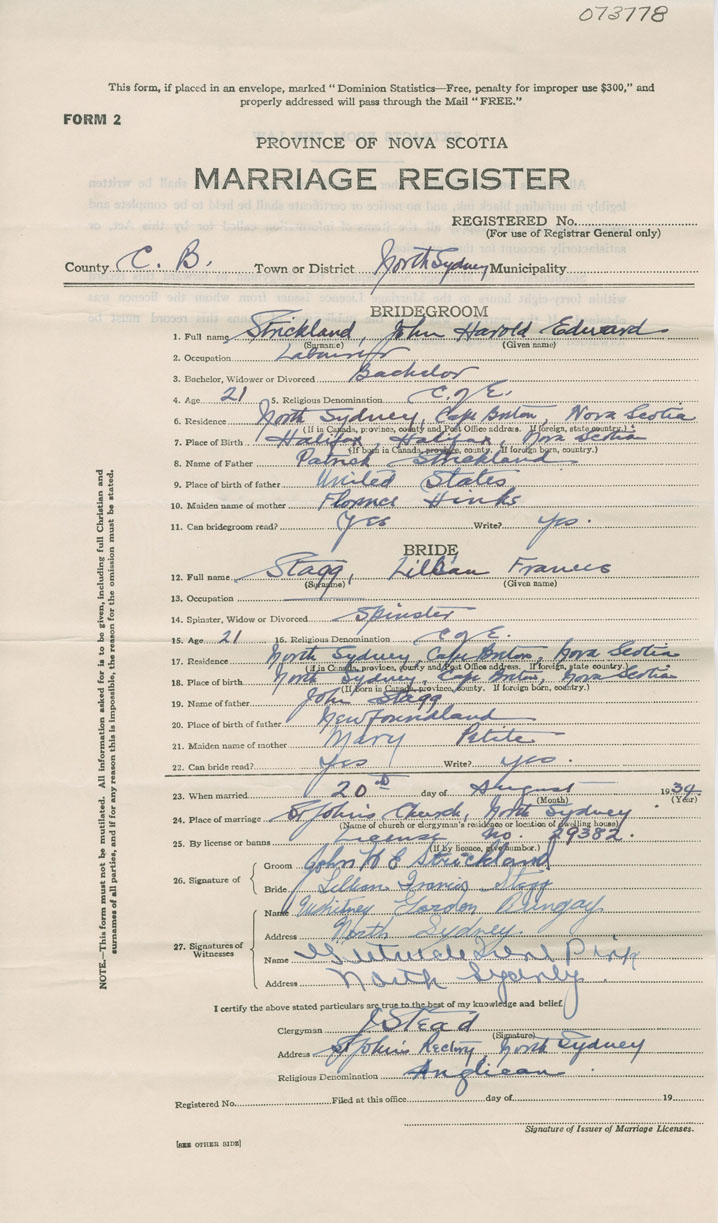 073778
This form, if placed in an envelope, marked "Dominion Statistics—Free, penalty for improper use $300," and
properly addressed will pass through the Mail "FREE."
FORM 2
PROVINCE OF NOVA SCOTIA
MARRIAGE REGISTER
REGISTERED No.
(For use of Registrar General only)
County C. B. Town or District North Sydney Municipality
BRIDEGROOM
1. Full name Strickland, John Harold Edward
(Surname) (Given name)
2. Occupation Labourer
3. Bachelor, Widower or Divorced Bachelor
4. Age 21 5. Religious Denomination C. of E.
6. Residence North Sydney, Cape Breton, Nova Scotia
(If in Canada, province, county and Post Office address. If foreign, state country.)
7. Place of Birth Halifax, Halifax, Nova Scotia
(If born in Canada, province, county. If foreign born, country.)
8. Name of Father Patrick Strickland
9. Place of birth of father United States
10. Maiden name of mother Florence Hinks
11. Can bridegroom read? Yes Write? Yes.
BRIDE
12. Full name Stagg, Lillian Frances
(Surname) (Given name)
13. Occupation
14. Spinster, Widow or Divorced Spinster
15. Age 21 16. Religious Denomination C of E.
17. Residence North Sydney, Cape Breton, Nova Scotia
(If in Canada, province, county and Post Office address. If foreign, state country.)
18. Place of birth North Sydney, Cape Breton, Nova Scotia
(If born in Canada, province, county. If foreign born, country.)
19. Name of father John Stagg
20. Place of birth of father Newfoundland
21. Maiden name of mother Mary Petite
22. Can bride read? Yes Write? Yes.
23. When married 20th day of August 1934
(Month) (Year)
24. Place of marriage St John's Church, North Sydney
(Name of church or clergyman's residence or location of dwelling house)
25. By license or banns License No. 29382.
(If by licence, give number.)
26. Signature of
Groom John H E Strickland
Bride Lillian Francis Stagg
27. Signatures of Witnesses
Name Whitney Gordon Dingay
Address North Sydney.
Name Pink
Address North Sydney.
I certify the above stated particulars are true to the best of my knowledge and belief.
Clergyman J Stead
(Signature)
Address St John's Rectory North Sydney
Religious Denomination Anglican
Registered No. Filed at this office day of 19
Signature of Issuer of Marriage Licenses.
[SEE OTHER SIDE]
NOTE.—This form must not be mutilated. All information asked for is to be given, including full Christian and
surnames of all parties, and if for any reason this is impossible, the reason for the omission must be stated.